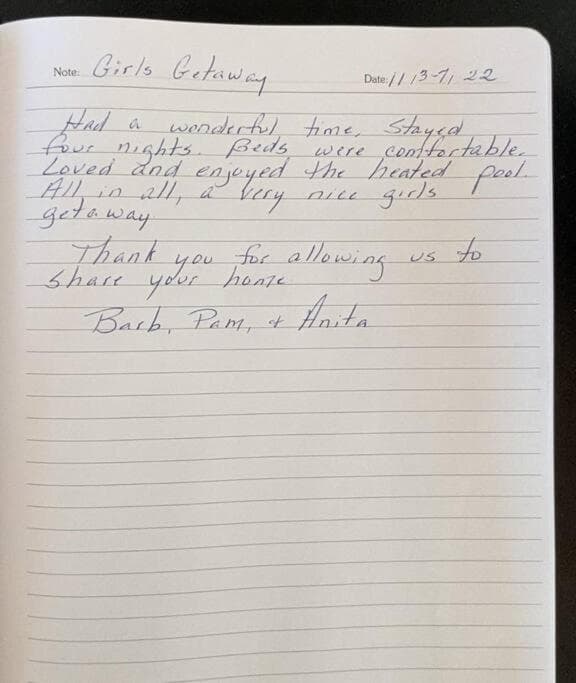 Note: Girls Getaway Date: 11/3-7, 22
Had a wonderful time. Stayed
four nights. Beds were comfortable.
Loved and enjoyed the heated pool.
All in all, a very nice girls
getaway
Thank you for allowing us to
share your home
Barb, Pam, & Anita